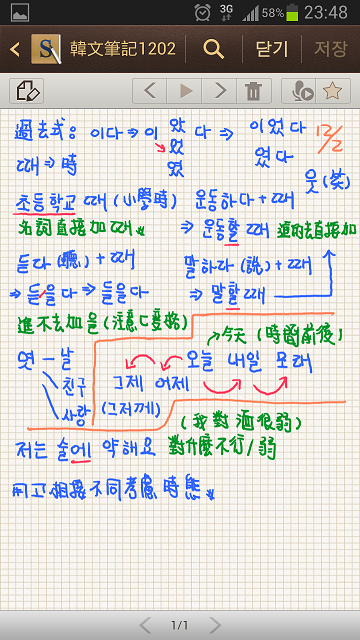 3G 58% 23:48
韓文筆記1202 닫기 저장
過去式: 이다⇒이 았 다 ⇒ 이었다 12/2
었 었다
였 웃(笑)
때⇒時
초등학교 때 (小學時) 운동하다+때
名詞直接加때。 ⇒ 운동할 때 進的去直接加
듣다(聽)+때 말하다(說)+때
⇒ 듣을다⇒들을다 ⇒ 말할때
進不去加을(注意ㄷ變格)
옛 - 날 今天 (時間前後)
친구 그제 어제 오늘 내일 모레
사랑 (그저께)
(我對酒很弱)
저는 술에 약해요 對什麼不行/弱
不同考慮時態。
1/1